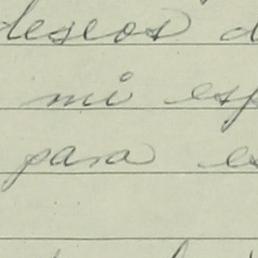 deseos d
mi esp
para es